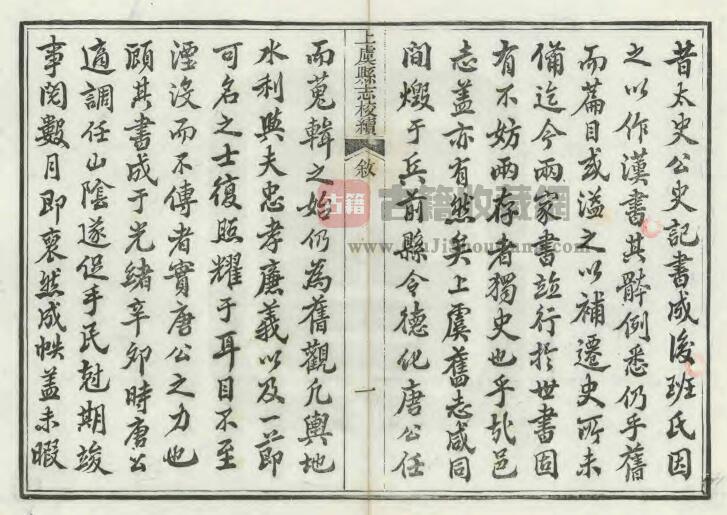 昔太史公史記書成後班氏因
之以作漢書其體例悉仍乎舊
而篇目或溢之以補遷史所未
備迄今兩家書竝行於世書固
有不妨兩存者獨史也乎哉邑
志蓋亦有然矣上虞舊志咸同
間燬于兵前縣令德化唐公任
上虞縣志校續
敘
一
而蒐輯之始仍為舊觀凡輿地
水利與夫忠孝廉義以及一節
可名之士復照耀于耳目不至
湮沒而不傳者實唐公之力也
顧其書成于光緒辛卯時唐公
適調任山陰遂促手民尅期竣
事閱數月即裒然成帙蓋未暇
古籍
古籍收藏網
www.GuJiShouCang.com